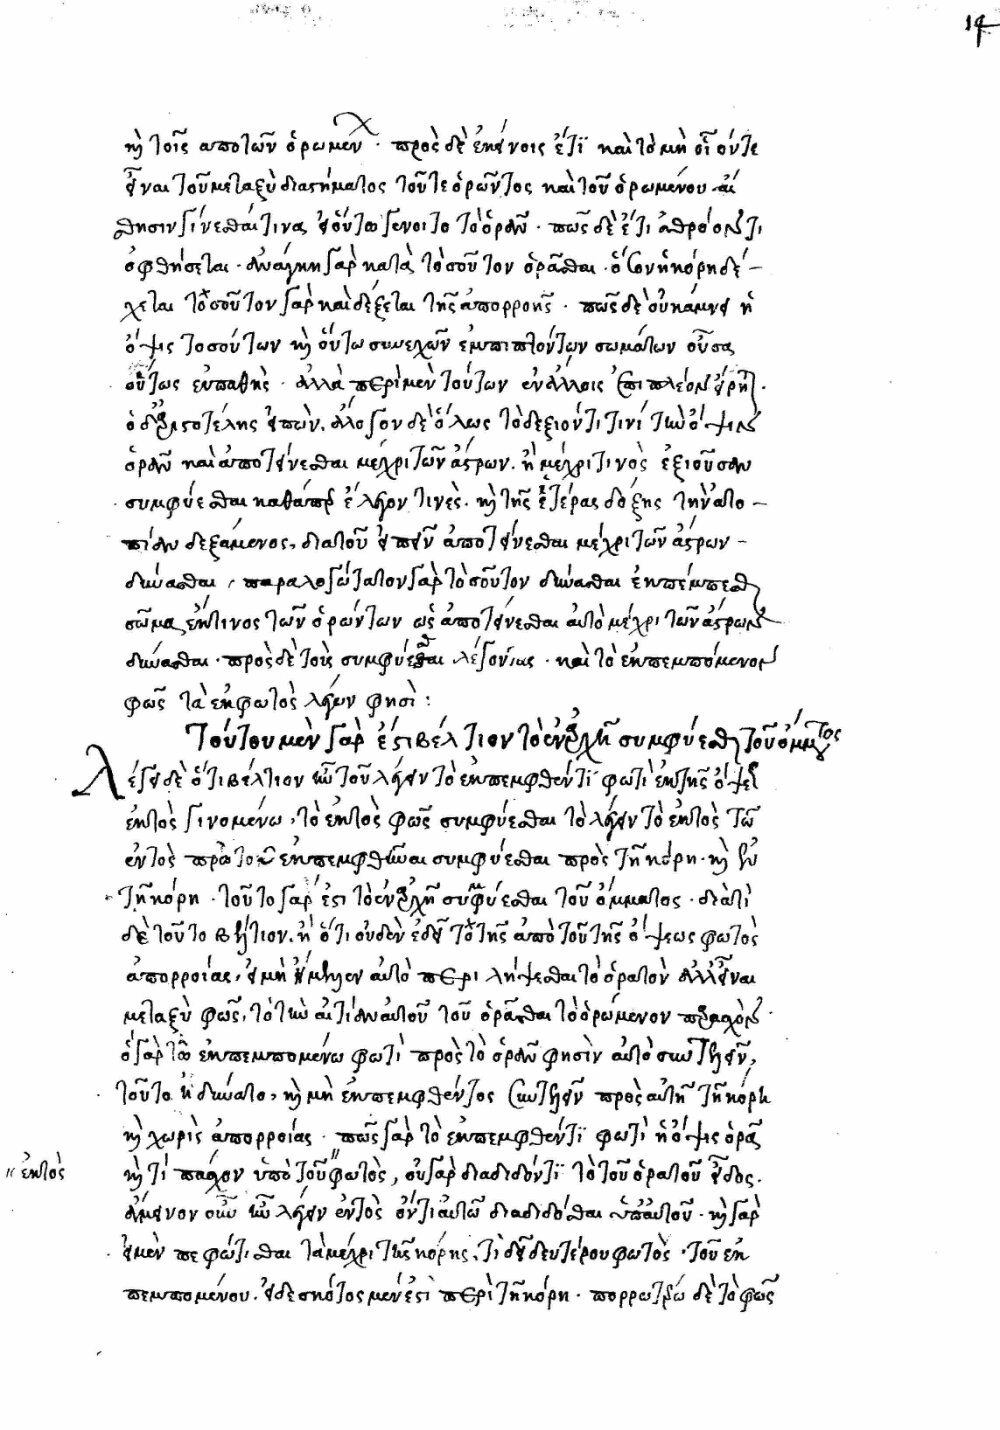 14
κὶ τοῖς ἀπὸ τῶν ὁρωμέν · πρὸς δὲ ἐκείνοις ἔτι καὶ τὸ μὴ οἷόν τε
εἶναι τοῦ μεταξὺ διαστήματος τοῦ τε ὁρῶντος καὶ τοῦ ὁρωμένου αἴ
σθησιν γίνεσθαί τινα, εἰ οὕτω γένοιτο τὸ ὁρᾶν · πῶς δὲ ἔτι ἀθρόον τι
ὀφθήσεται · ἀνάγκη γὰρ κατὰ τοσοῦτον ὁρᾶσθαι · ὅσον ἡ κόρη δέ –
χεται τοσοῦτον γὰρ καὶ δέξεται τῆς ἀπορροῆς · πῶς δὲ οὐ κάμνει ἡ
ὄψις τοσούτων κὶ οὕτω συνεχῶν ἐμπιπτόντων σωμάτων οὖσα
οὕτως εὐπαθὴς · ἀλλὰ περὶ μὲν τούτων ἐν ἄλλοις ἐπιπλέον εἴρηται ·
ὁ δ' ἀριστοτέλης εἰπὼν, ἄλογον δὲ ὅλως τὸ δεξιόντι τινὶ τὴν ὄψιν
ὁρᾶν καὶ ἀποτείνεσθαι μέχρι τῶν ἄστρων. ἢ μέχρι τινὸς ἐξιοῦσαν
συμφύεσθαι καθάπερ ἔλεγον τινὲς. κὶ τῆς ἑτέρας δόξης τὴν ἀτο –
πίαν δεξάμενος, διὰ τοῦ εἰπεῖν ἀποτείνεσθαι μέχρι τῶν ἄστρων –
δύνασθαι, παραλογώτατον γὰρ τοσοῦτον δύνασθαι ἐκπέμπεσθαι
σῶμα ἔκ τινος τῶν ὁρώντων ὡς ἀποτείνεσθαι αὐτὸ μέχρι τῶν ἄστρων
δύνασθαι · πρὸς δὲ τοὺς συμφύεσθαι λέγοντας · καὶ τὸ ἐκπεμπόμενον
φῶς τὰ ἐκ φωτὸς λέγων φησὶ :
Τούτου μὲν γὰρ ἔστι βέλτιον τὸ ἐν ἀρχῇ συμφύεσθαι τοῦ ὄμματος
Λέγει δὲ ὅτι βέλτιον ἦν τοῦ λέγειν τὸ ἐκπεμφθέντι φωτὶ ἐκ τῆς ὄψεως
ἐκτὸς γινομένω, τὸ ἐκτὸς φῶς συμφύεσθαι τὸ λέγειν τὸ ἐκτὸς τῶ
ἐντὸς πρὸ τοῦ ἐκπεμφθῆναι συμφύεσθαι πρὸς τῆ κόρη · κὶ ἐν
τῆ κόρη · τοῦτο γάρ ἐστι τὸ ἐν ἀρχῆ συμφύεσθαι τοῦ ὄμματος · διατὶ
δὲ τοῦτο βέλτιον. ἢ ὅτι οὐδὲν ἔδει τὸ τῆς ἀπὸ τοῦ τῆς ὄψεως φωτὸς
ἀπορροίας, εἰ μὴ ἔμελλεν αὐτὸ περιλήψεσθαι τὸ ὁρατὸν ἀλλ' εἶναι
μεταξὺ φῶς, τὸ τὴν αἰτίαν αὐτοῦ τοῦ ὁρᾶσθαι τὸ ὁρώμενον παρασχὸν ·
ὃ γὰρ τῶ ἐκπεμπομένω φωτὶ πρὸς τὸ ὁρᾶν φησὶν αὐτὸ συντελεῖν,
τοῦτο ἠδύνατο, κὶ μὴ ἐκπεμφθέντος συντελεῖν πρὸς αὐτῆ τῆ κόρη
κὶ χωρὶς ἀπορροίας · πῶς γὰρ τὸ ἐκπεμφθέντι φωτὶ ἡ ὄψις ὁρᾶ
κὶ τί πάσχον ὑπὸ τοῦ " φωτὸς, οὐ γὰρ διαδιδόντι τὸ τοῦ ὁρατοῦ εἶδος.
" ἐκτὸς
ἄμεινον οὖν ἦν λέγειν ἐντὸς ὄντι αὐτῶ διαδίδοσθαι ὑπ' αὐτοῦ · κὶ γὰρ
εἰ μὲν πεφώτισθαι τὰ μέχρι τῆς κόρης, τί δεῖ δευτέρου φωτὸς · τοῦ ἐκ
πεμπομένου. εἰ δὲ σκότος μέν ἐστι περὶ τῆ κόρη · πορρωτέρω δὲ τὸ φῶς